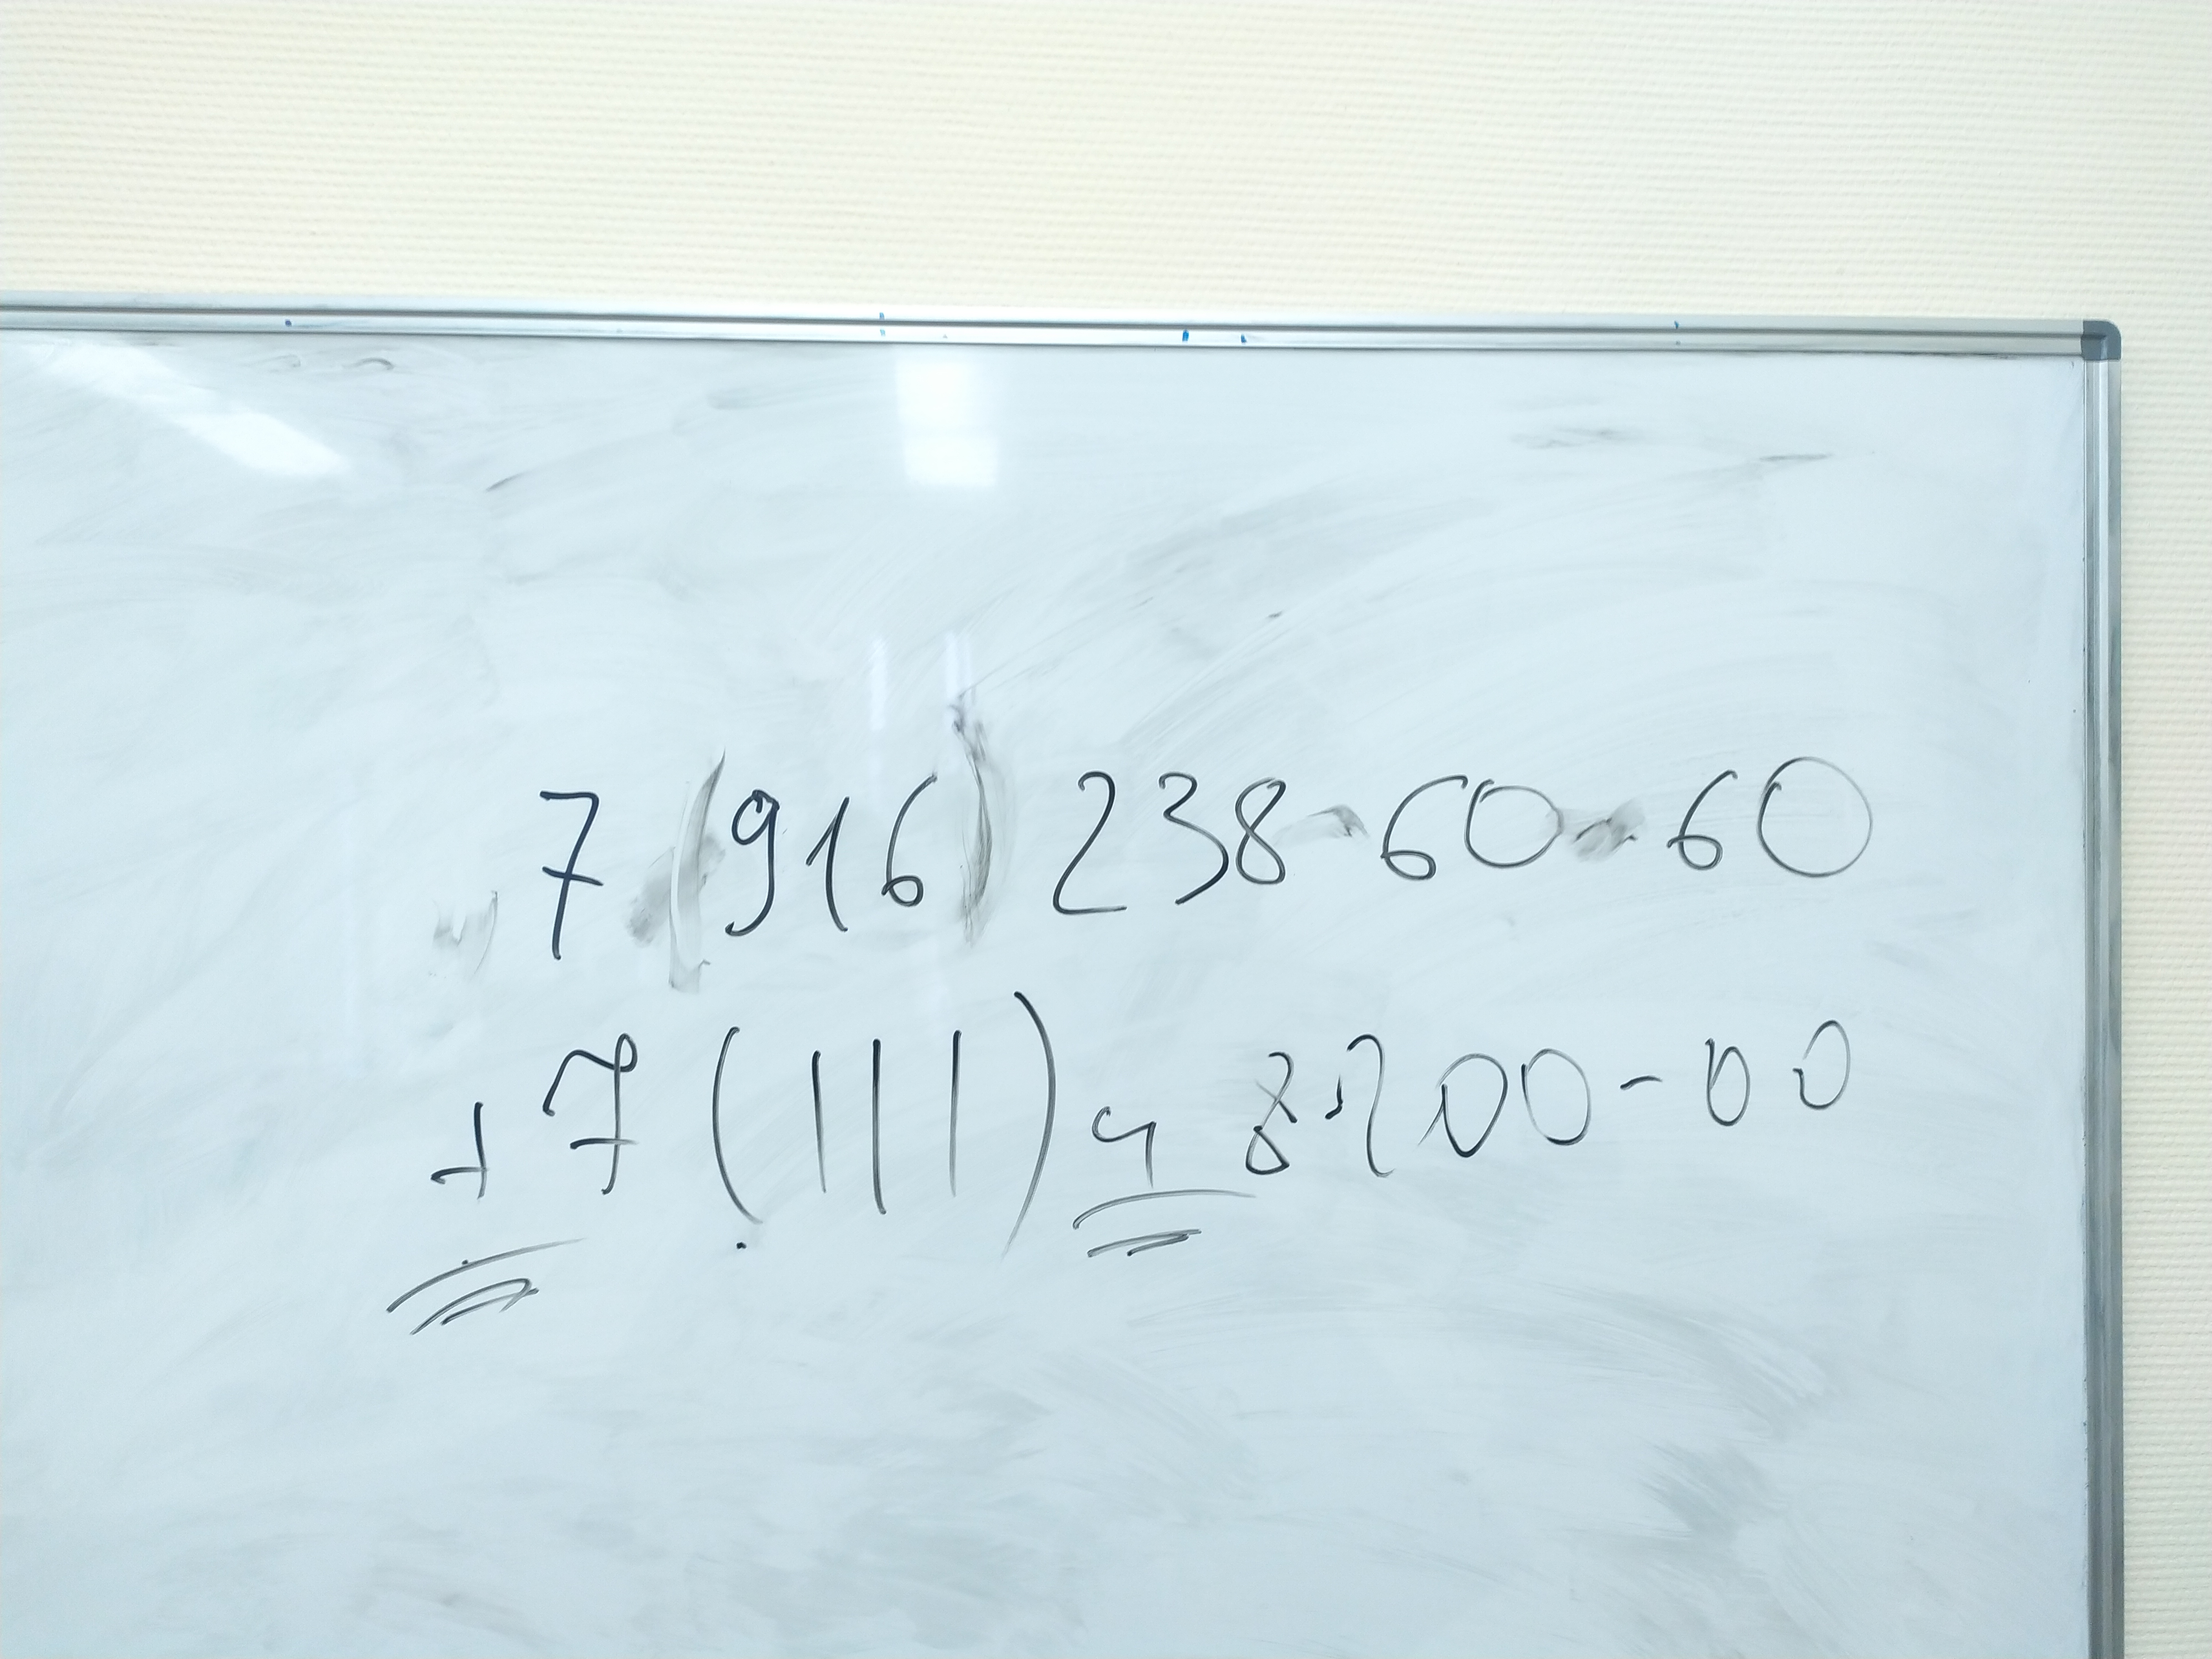 7 (916) 238-60-60
+7 (111) 4 8200-00